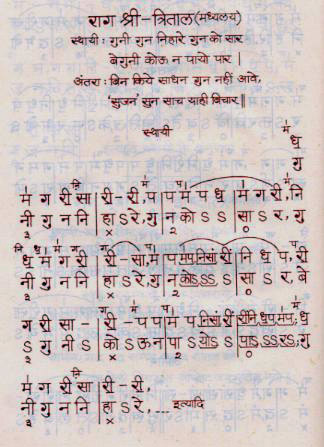 राग श्री-त्रिताल (मध्यलय)
स्थायी : गुनी गुन निहारे गुन को सार
बेगुनी कोऊ न पायो पार |
अंतरा : बिन किये साधन गुन नहीं आवे,
'सुजन' सुन साच याही बिचार ||
स्थायी
मं
ध
गु
मं ग री सा | री - री, प | प मं प ध | मं ग री, नि
नी गु न नि | हा ऽ रे, गु | न को ऽ ऽ | सा ऽ र, गु
x 2 0
ध मं ग री | री - सा, मं | प मंप निसां रीं | नि ध प, री
नी गु न नि | हा ऽ रे, गु | न कोऽ ऽऽ ऽ | सा ऽ र, बे
x 2 0
ग री सा - | री - प प | मं प निसां रीं | रींनि धप मंप, ध
ऽ गु नी ऽ | को ऽ ऊ न | पा ऽ योऽ ऽ | पाऽ ऽऽ रऽ, गु
x 2 0
मं ग री सा | री - री,
नी गु न नि | हा ऽ रे, ... इत्यादि
x